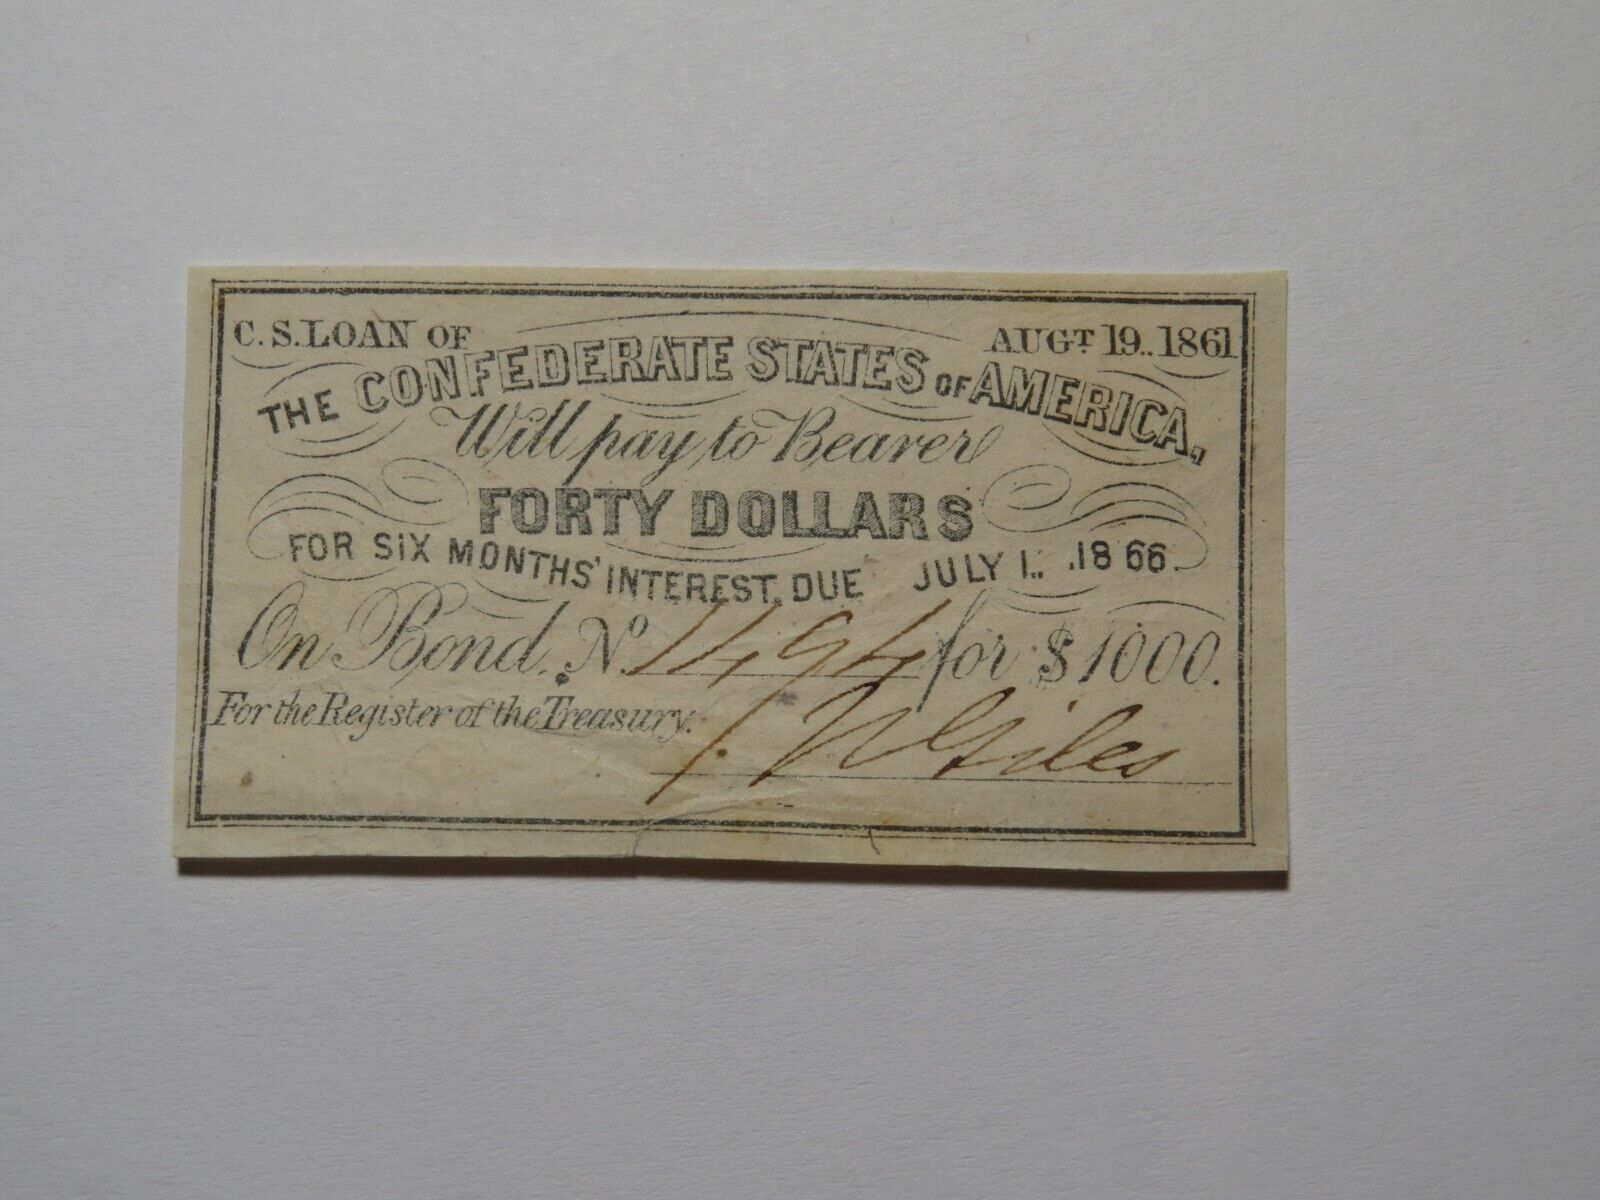 C. S. LOAN OF AUGT 19.. 1861
THE CONFEDERATE STATES OF AMERICA,
Will pay to Bearer
FORTY DOLLARS
FOR SIX MONTHS' INTEREST, DUE JULY 1.. .1866.
On Bond, No. 1494 for $1000.
For the Register of the Treasury. J. W Giles